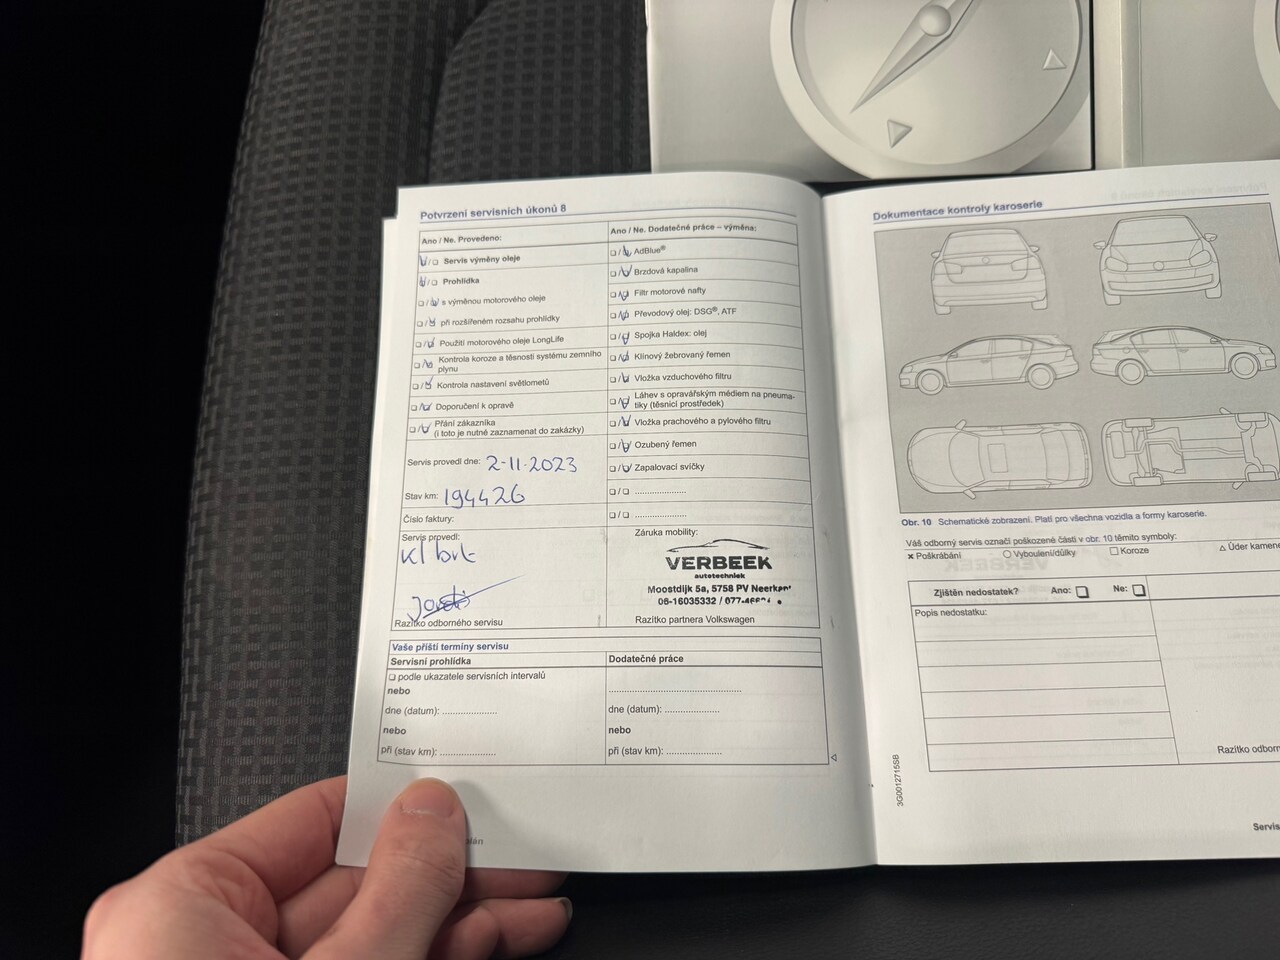 Potvrzení servisních úkonů 8
Ano / Ne. Provedeno:
Servis výměny oleje
Prohlídka
s výměnou motorového oleje
při rozšířeném rozsahu prohlídky
Použití motorového oleje LongLife
Kontrola koroze a těsnosti systému zemního
plynu
Kontrola nastavení světlometů
Doporučení k opravě
Přání zákazníka
(i toto je nutné zaznamenat do zakázky)
Servis provedl dne: 2-11-2023
Stav km: 194426
Číslo faktury:
Servis provedl:
Razítko odborného servisu
Ano / Ne. Dodatečné práce – výměna:
AdBlue®
Brzdová kapalina
Filtr motorové nafty
Převodový olej: DSG®, ATF
Spojka Haldex: olej
Klínový žebrovaný řemen
Vložka vzduchového filtru
Láhev s opravářským médiem na pneuma-
tiky (těsnicí prostředek)
Vložka prachového a pylového filtru
Ozubený řemen
Zapalovací svíčky
Záruka mobility:
VERBEEK
autotechniek
Moostdijk 5a, 5758 PV Neerkant
06-16035332 / 077-
Razítko partnera Volkswagen
Vaše příští termíny servisu
Servisní prohlídka
podle ukazatele servisních intervalů
nebo
dne (datum): ....................
nebo
při (stav km): ....................
Dodatečné práce
dne (datum): ....................
nebo
při (stav km): ....................
Dokumentace kontroly karoserie
Obr. 10 Schematické zobrazení. Platí pro všechna vozidla a formy karoserie.
Váš odborný servis označí poškozené části v obr. 10 těmito symboly:
× Poškrábání ○ Vyboulení/důlky □ Koroze △ Úder kamene
Zjištěn nedostatek? Ano: □ Ne: □
Popis nedostatku:
Razítko odborn
3G0012715SB
Servis